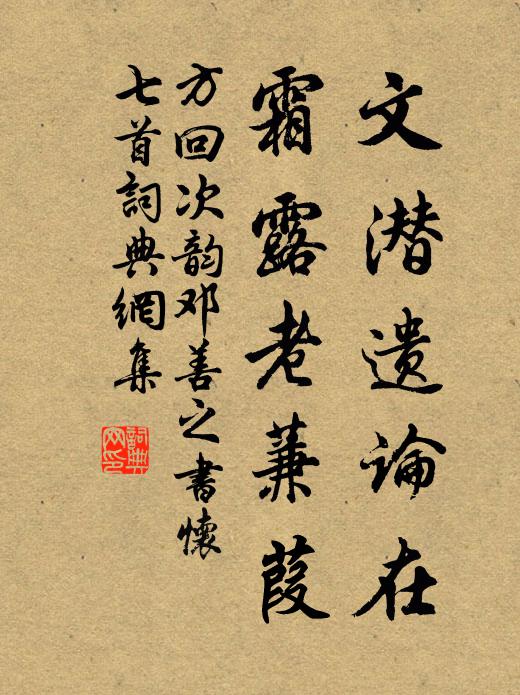 文潜遗论在
霜露老蒹葭
方回次韵邓善之書懷
七首詞典網集
詞典网印